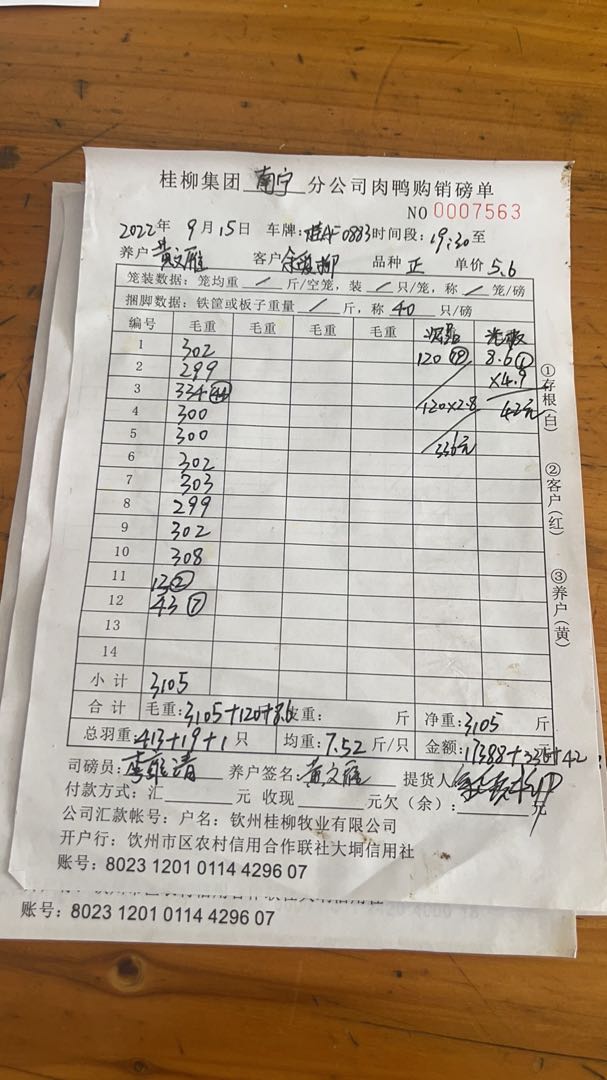 桂柳集团 南宁 分公司肉鸭购销磅单
NO 0007563
2022年 9月15日 车牌:桂AF0883 时间段:19:30至
养户 黄文雁 客户 余 柳 品种 正 单价 5.6
笼装数据: 笼均重 / 斤/空笼, 装 / 只/笼, 称 / 笼/磅
捆脚数据: 铁筐或板子重量 / 斤, 称 40 只/磅
编号 毛重 毛重 毛重 毛重
1 302
120 ⑲ 8.6①
2 299
×4.9
3 334㊹
120×2.8 42元
4 300
5 300
336元
6 302
7 303
8 299
9 302
10 308
11 13②
12 43⑦
13
14
小计 3105
合计 毛重:3105+120+8.6 皮重: 斤 净重:3105 斤
总羽重:413+19+1 只 均重:7.52 斤/只 金额:17388+336+42 元
司磅员: 清 养户签名:黄文雁 提货人
付款方式:汇 元 收现 元欠(余): 元
公司汇款帐号: 户名: 钦州桂柳牧业有限公司
开户行: 钦州市区农村信用合作联社大垌信用社
账号: 8023 1201 0114 4296 07
①存根(白)
②客户(红)
③养户(黄)
账号: 8023 1201 0114 4296 07